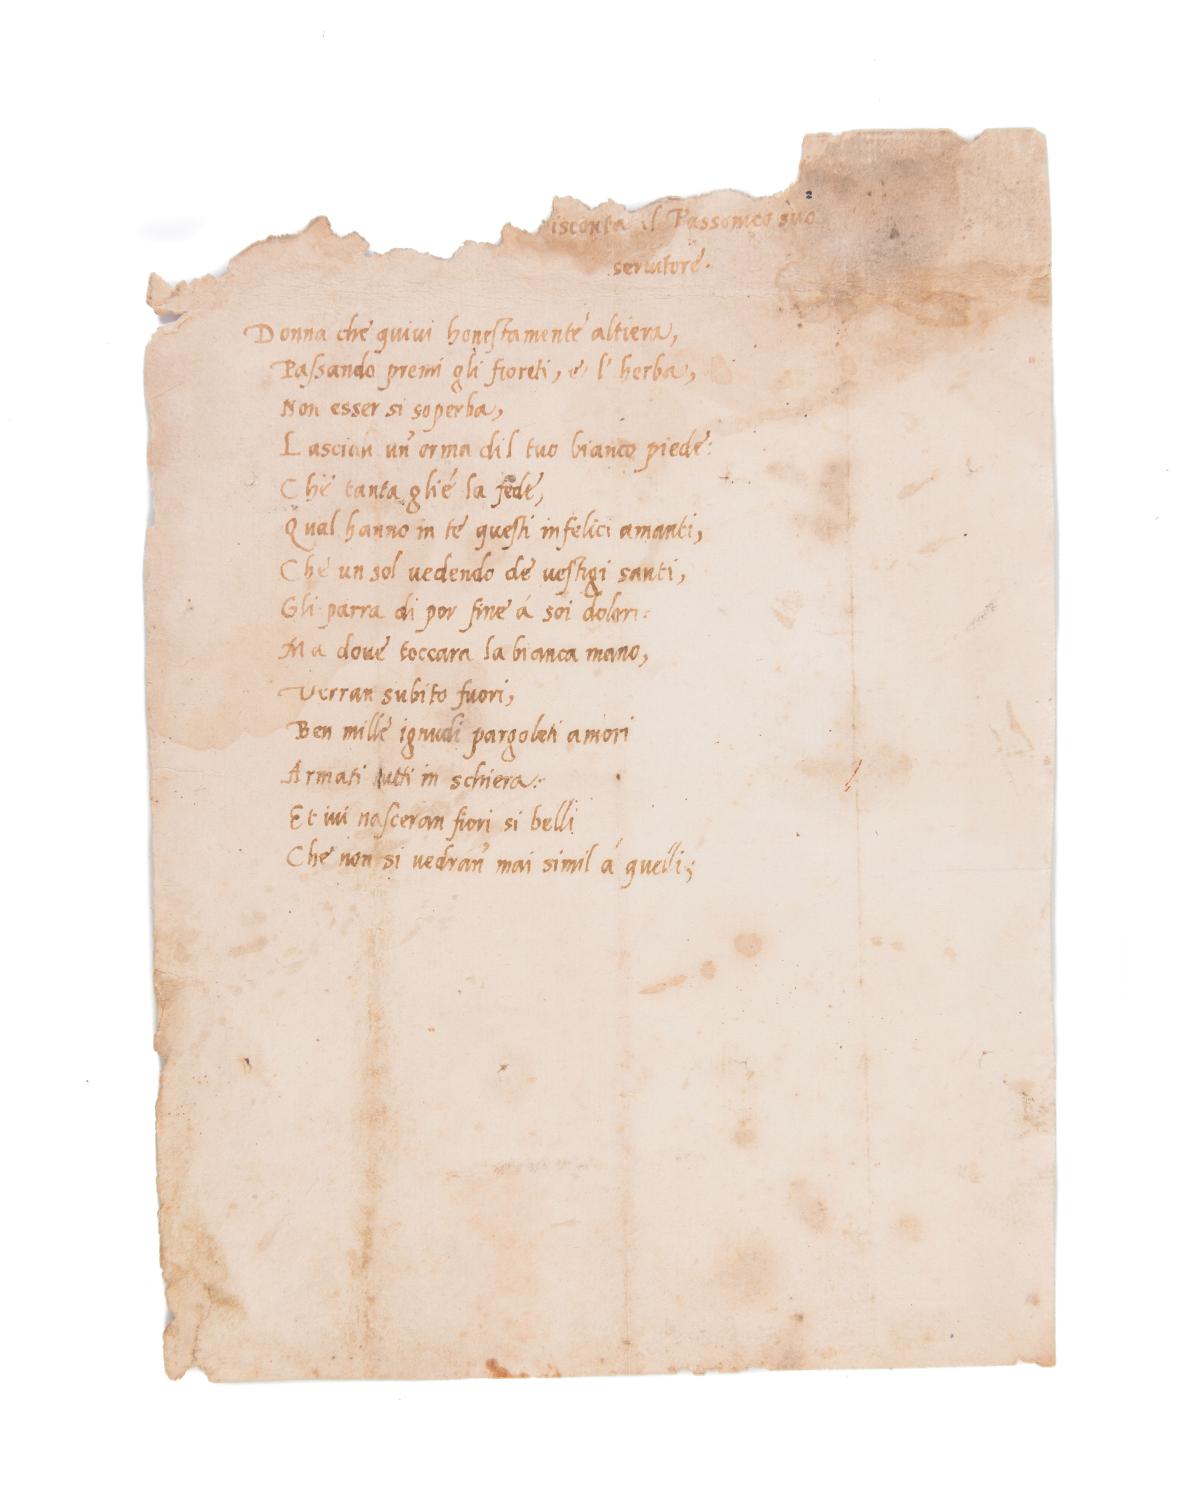 isconta il Passonico suo
seruitore.
Donna che quiui honestamente altiera,
Passando premi gli fioreti, e l' herba,
Non esser si soperba,
Lascian un' orma dil tuo bianco piede:
Che tanta glié la fede,
Qual hanno in te questi infelici amanti,
Che un sol uedendo de uestigi santi,
Gli parra di por fine á soi dolori:
Ma doue toccara la bianca mano,
Verran subito fuori,
Ben mille ignudi pargoleti amori
Armati tutti in schiera:
Et iui nasceran fiori si belli
Che non si uedran mai simil á quelli;